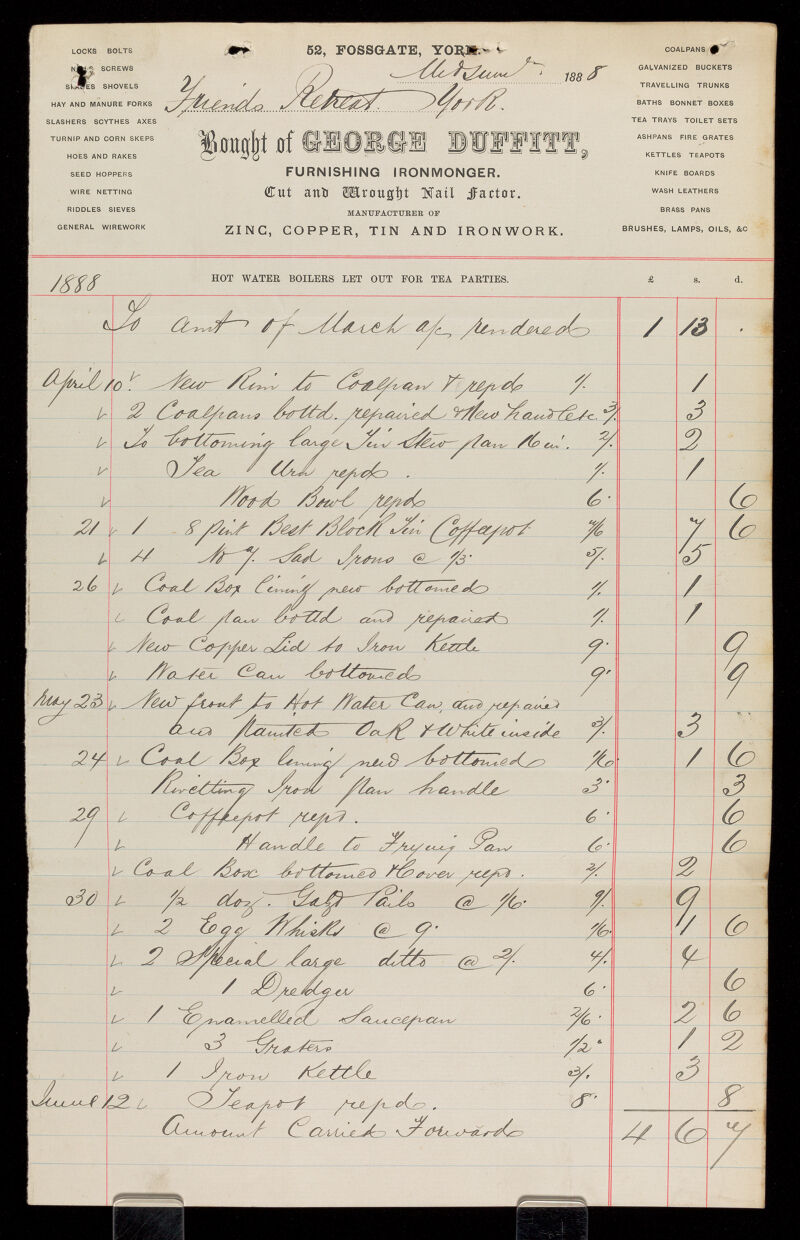 52, FOSSGATE, YORK.
Midsumr. 1888
Friends Retreat York.
Bought of GEORGE DUFFITT,
FURNISHING IRONMONGER.
Cut and Wrought Nail Factor.
MANUFACTURER OF
ZINC, COPPER, TIN AND IRONWORK.
LOCKS BOLTS
NAILS SCREWS
SPADES SHOVELS
HAY AND MANURE FORKS
SLASHERS SCYTHES AXES
TURNIP AND CORN SKEPS
HOES AND RAKES
SEED HOPPERS
WIRE NETTING
RIDDLES SIEVES
GENERAL WIREWORK
COALPANS
GALVANIZED BUCKETS
TRAVELLING TRUNKS
BATHS BONNET BOXES
TEA TRAYS TOILET SETS
ASHPANS FIRE GRATES
KETTLES TEAPOTS
KNIFE BOARDS
WASH LEATHERS
BRASS PANS
BRUSHES, LAMPS, OILS, &C
1888 HOT WATER BOILERS LET OUT FOR TEA PARTIES. £ s. d.
To amt of March a/c rendered 1 13 .
April 10 New Rim to Coalpan & repd 1/. 1
2 Coalpans bottd. repaired & New handle &c 3/. 3
To bottoming large Tin Stew pan 2/. 2
Tea Urn repd. 1/. 1
Wood Bowl repd 6 6
21 1 8 pint Best Block Tin Coffeepot 7/6 7 6
4 No 7. Sad Irons @ 1/3 5/. 5
26 Coal Box lining new bottomed 1/. 1
Coal pan bottd and repaired 1/. 1
New Copper Lid to Iron Kettle 9 9
Water Can bottomed 9 9
May 23 New front to Hot Water Can, and repaired
and painted Oak & White inside 3/. 3
24 Coal Box lining new bottomed 1/6 1 6
Rivetting Iron pan handle 3 3
29 Coffeepot repd. 6 6
Handle to Frying Pan 6 6
Coal Box bottomed & Cover repd. 2/. 2
30 1/2 doz. Galzd Pails @ 1/6 9/. 9
2 Egg Whisks @ 9 1/6 1 6
2 Special large ditto @ 2/. 4/. 4
1 Dredger 6 6
1 Enamelled Saucepan 2/6 2 6
3 Graters 1/2 1 2
1 Iron Kettle 3/. 3
June 12 Teapot repd. 8 8
Amount Carried Forward 4 6 7